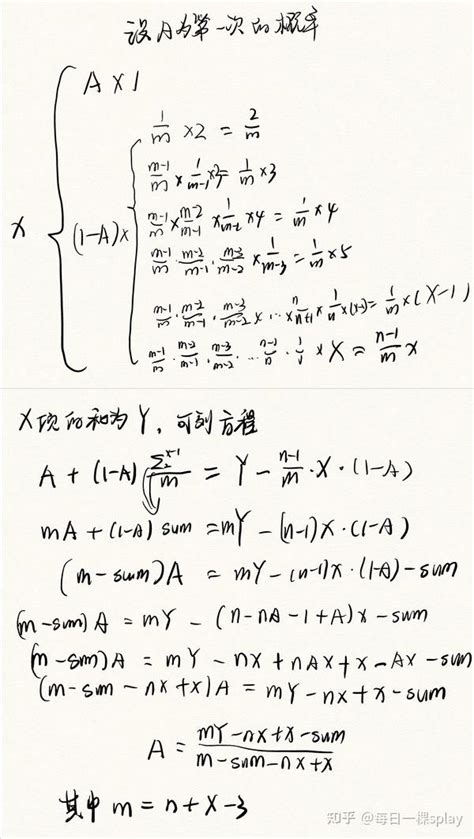 设A为第一次的概率
X { A×1
(1-A)× { 1/m ×2 = 2/m
m-1/m × 1/m-1 ×3 = 1/m ×3
m-1/m × m-2/m-1 × 1/m-2 ×4 = 1/m ×4
m-1/m · m-2/m-1 · m-3/m-2 × 1/m-3 = 1/m ×5
m-1/m · m-2/m-1 · m-3/m-2 × ... × n/n+1 × 1/n ×(x-1) = 1/m ×(X-1)
m-1/m · m-2/m-1 · m-3/m-2 ... n-1/n · 1/1 × X = n-1/m x
X项的和为Y，可列方程
A + (1-A) ∑₂ˣ⁻¹/m = Y - n-1/m · X · (1-A)
mA + (1-A) sum = mY - (n-1)X · (1-A)
(m-sum)A = mY - (n-1)x · (1-A) - sum
(m-sum)A = mY - (n-nA-1+A)x - sum
(m-sm)A = mY - nx + nAx + x - Ax - sum
(m-sm-nx+x)A = mY-nx+x-sum
A = mY-nx+x-sum/m-sum-nx+x
其中 m = n+x-3
知乎 @每日一棵splay